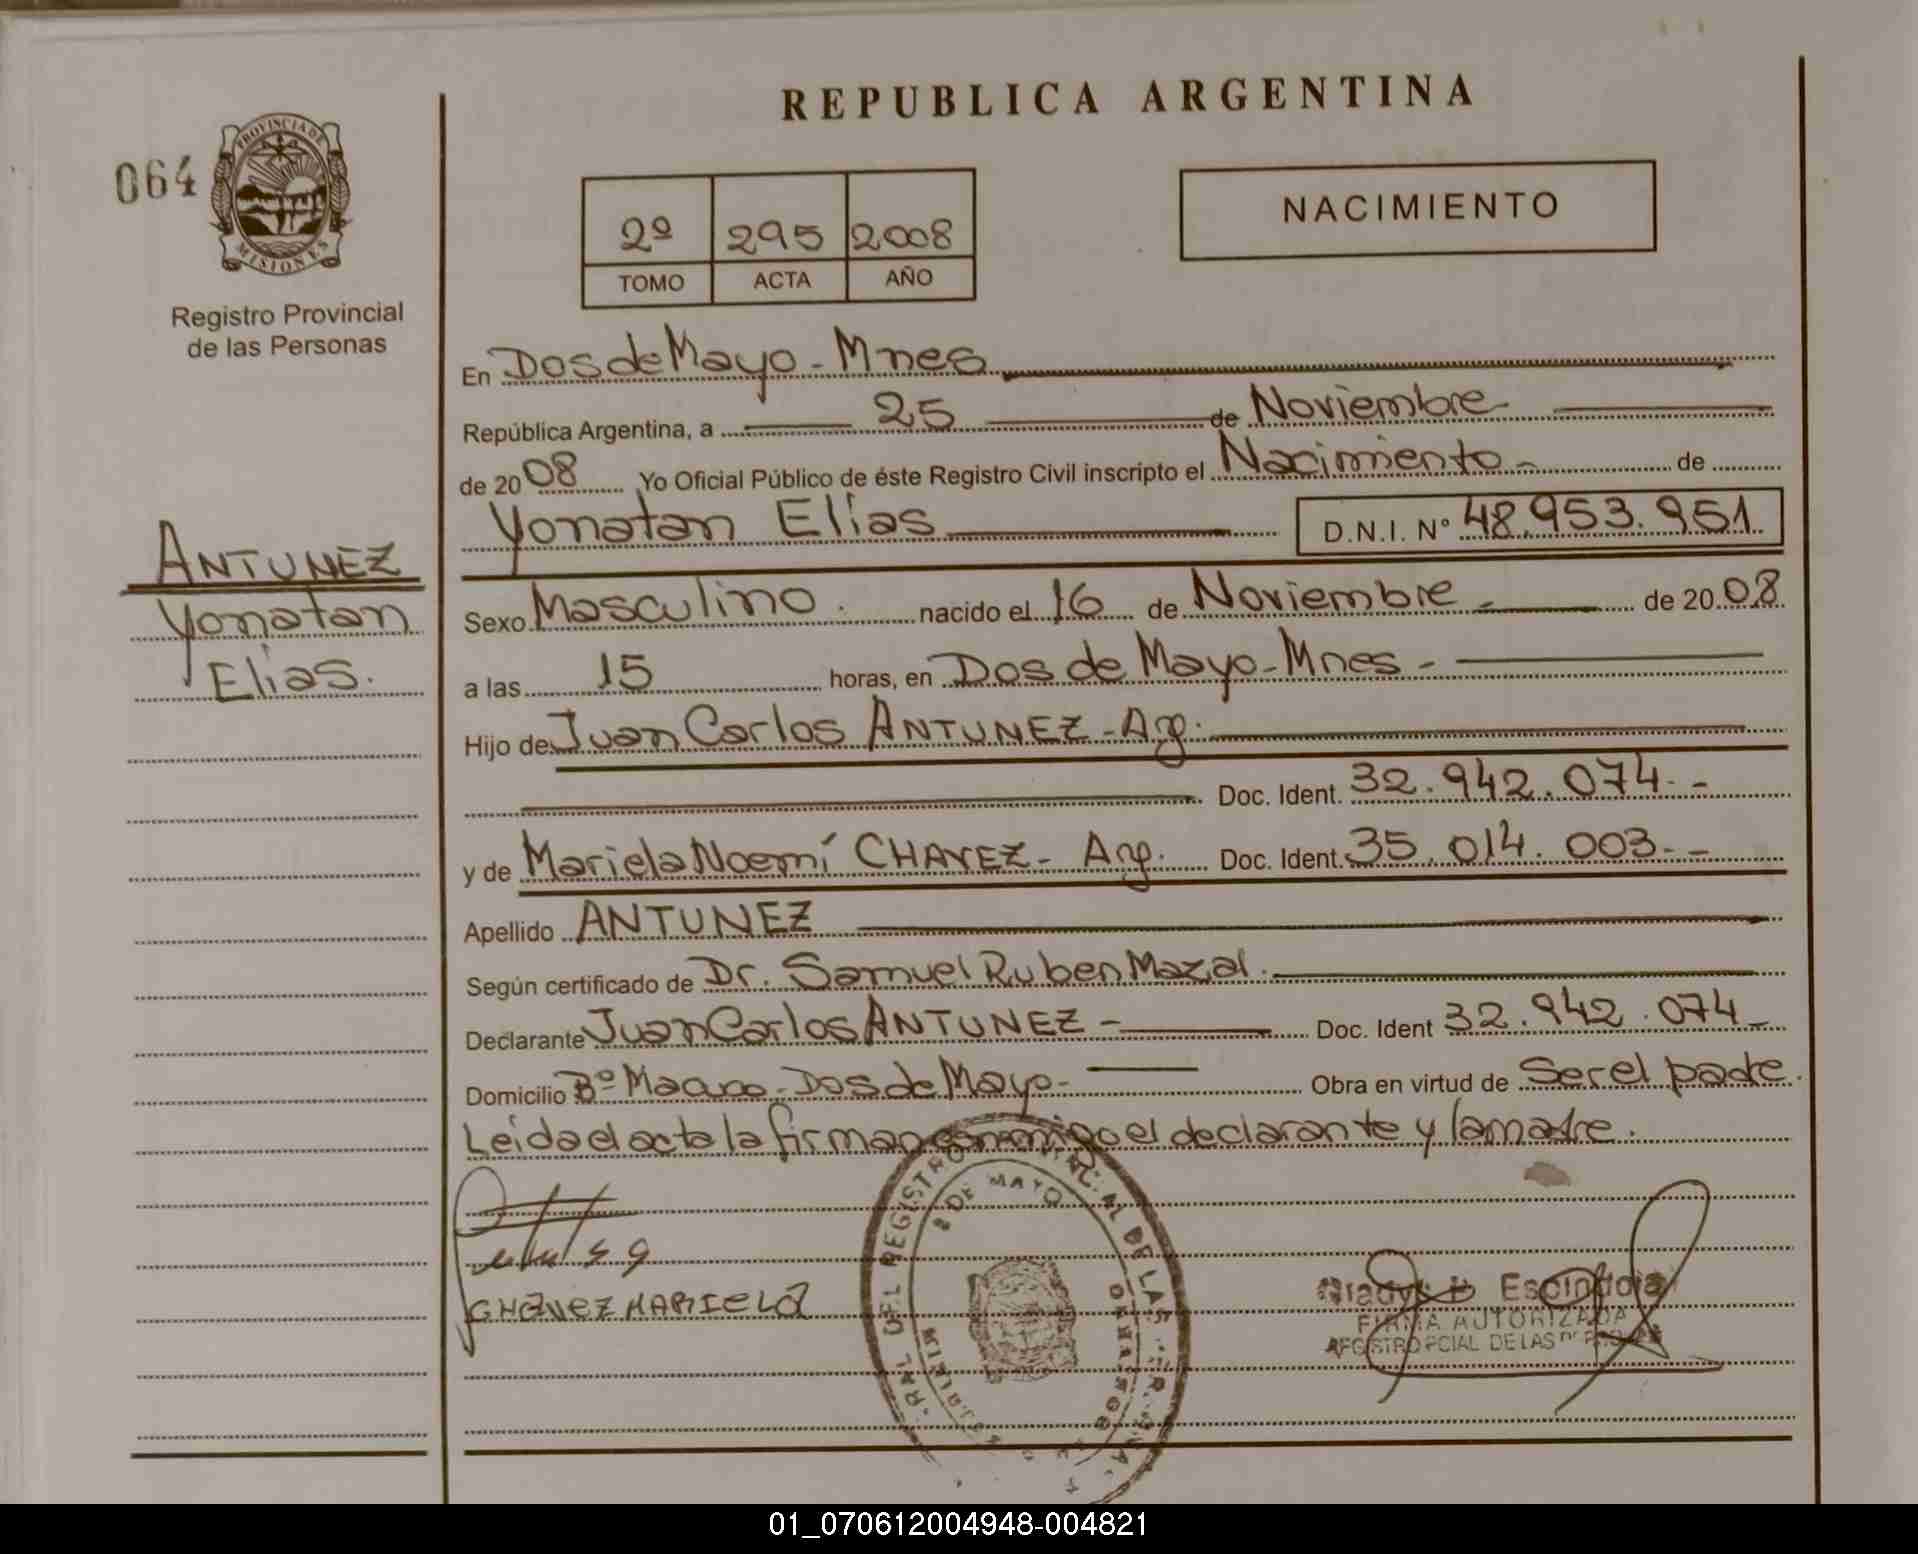 REPUBLICA ARGENTINA
064
PROVINCIA DE
MISIONES
Registro Provincial
de las Personas
2º 295 2008
TOMO ACTA AÑO
NACIMIENTO
En Dos de Mayo - Mnes
República Argentina, a 25 de Noviembre
de 2008 Yo Oficial Público de éste Registro Civil inscripto el Nacimiento - de
Yonatan Elias D.N.I. Nº 48.953.951
ANTUNEZ
Yonatan
Elias.
Sexo Masculino. nacido el 16 de Noviembre - de 2008
a las 15 horas, en Dos de Mayo - Mnes -
Hijo de Juan Carlos ANTUNEZ - Arg.
Doc. Ident. 32.942.074. -
y de Mariela Noemí CHAVEZ - Arg. Doc. Ident. 35.014.003. -
Apellido ANTUNEZ
Según certificado de Dr. Samuel Ruben Mazal.
Declarante Juan Carlos ANTUNEZ - Doc. Ident 32.942.074 -
Domicilio Bº Macuco - Dos de Mayo - Obra en virtud de Ser el padre.
Leida el acta la firman conmigo el declarante y la madre.
CHAVEZ MARIELA
DEL REGISTRO DE LAS
DE MAYO
Gladys Escindola
FIRMA AUTORIZADA
REGISTRO PCIAL DE LAS
01_070612004948-004821